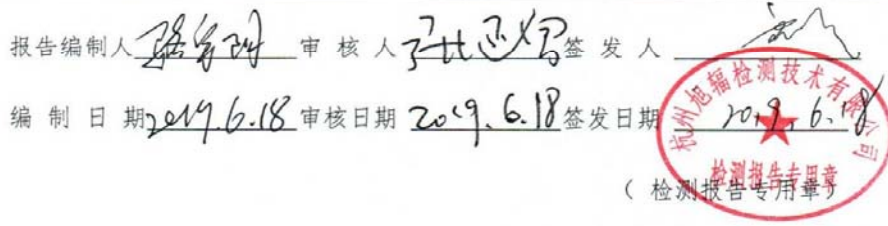 报告编制人 审核人 签发人
编制日期2019.6.18审核日期2019.6.18签发日期2019.6.18
杭州旭辐检测技术有限公司
检测报告专用章
（检测报告专用章）